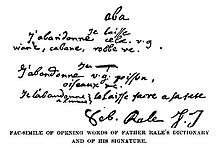 aba
je laisse
j'abandonne cela. v.g
want, cabane, robbe &c.
J'abandonne v.g. poisson,
oiseaux &c.
Je l'abandonne, je la laisse faire a sa teste
Seb. Rale S.J
FAC-SIMILE OF OPENING WORDS OF FATHER RALE'S DICTIONARY
AND OF HIS SIGNATURE.